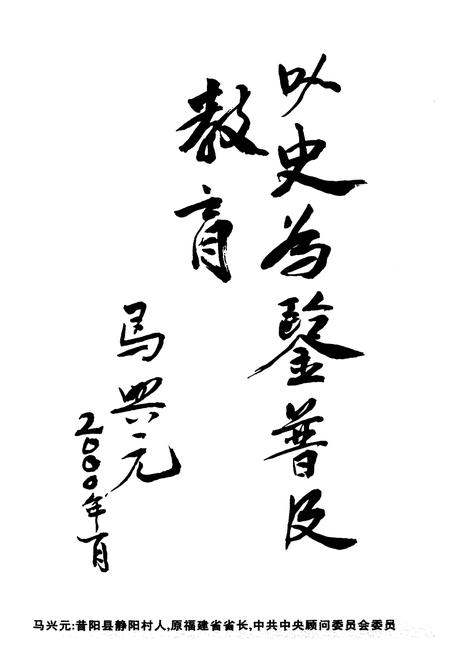 以史为鉴普及
教育
马兴元
2000年一月
马兴元:昔阳县静阳村人,原福建省省长,中共中央顾问委员会委员